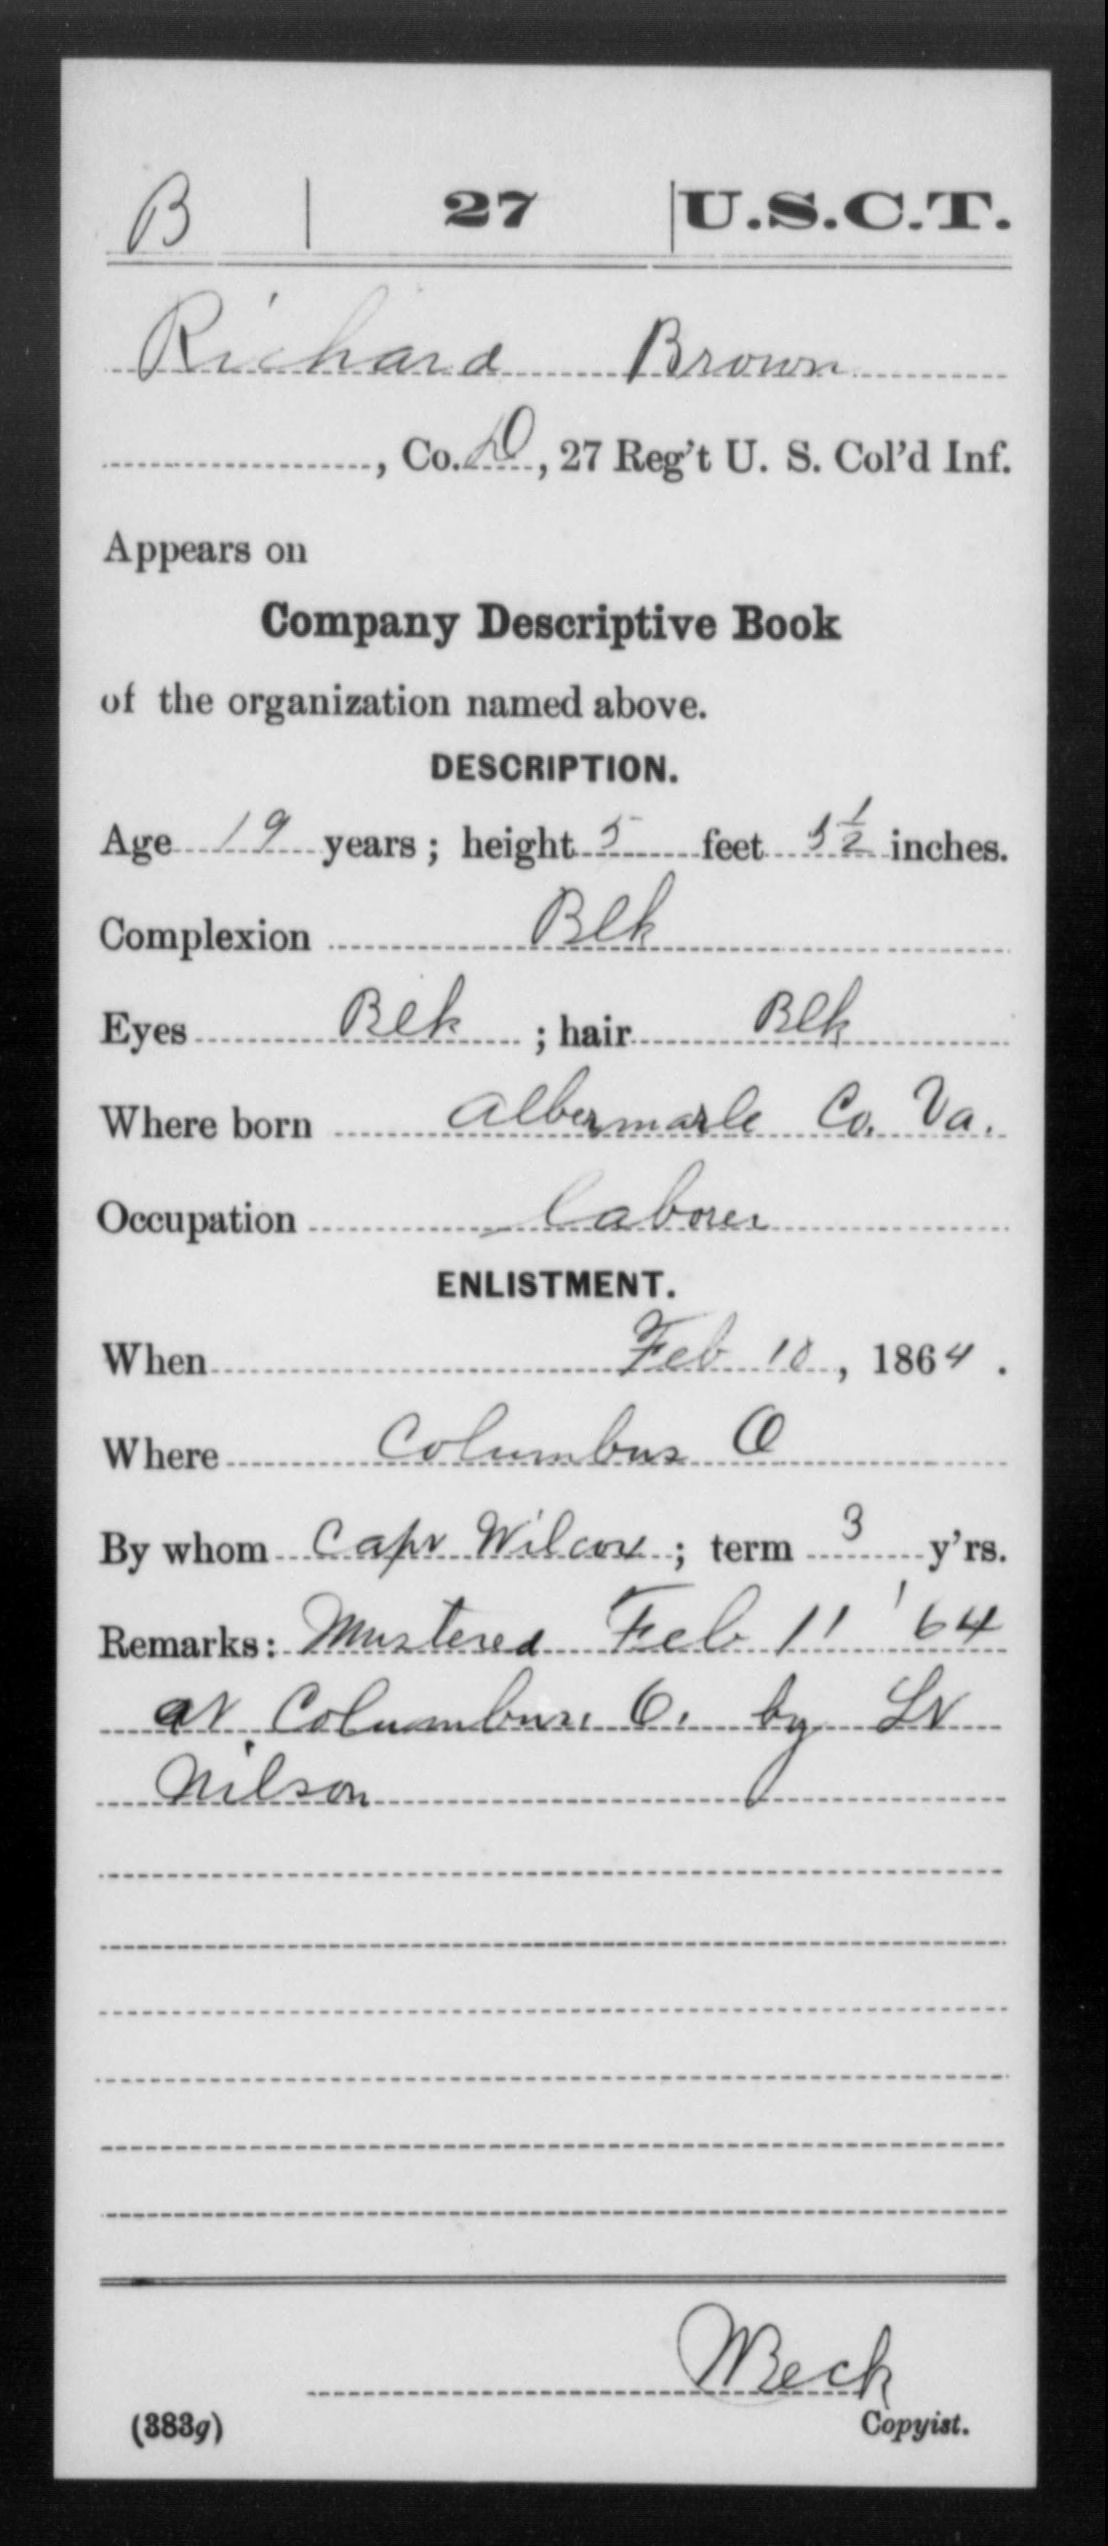 B | 27 | U.S.C.T.
Richard Brown
, Co. D, 27 Reg't U. S. Col'd Inf.
Appears on
Company Descriptive Book
of the organization named above.
DESCRIPTION.
Age 19 years; height 5 feet 3½ inches.
Complexion Blk
Eyes Blk ; hair Blk
Where born Albermarle Co. Va.
Occupation Laborer
ENLISTMENT.
When Feb 10, 1864.
Where Columbus O
By whom Capt Wilcox; term 3 y'rs.
Remarks: Mustered Feb 11 '64
at Columbus. O. by Lt
Nilson
Beck
(383g) Copyist.